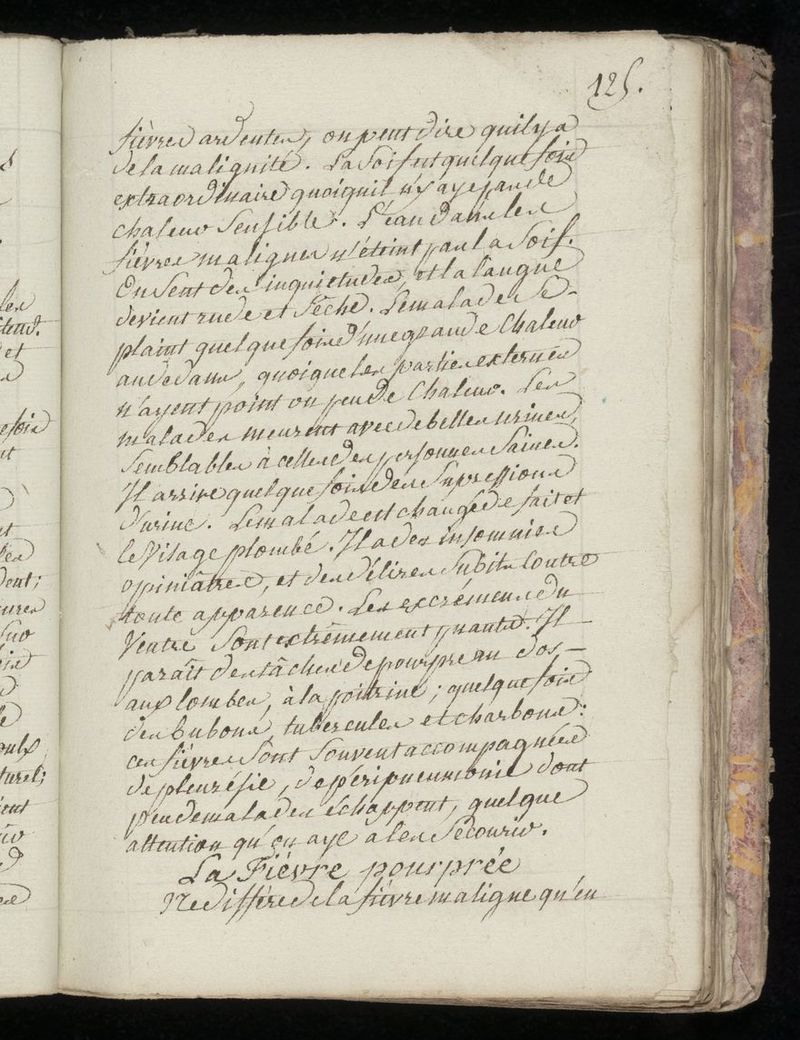 125.
fièvres ardentes, on peut dire qu'il y a
de la malignité. La soif est quelque fois
extraordinaire quoiqu'il n'y aye pas de
chaleur sensible. L'eau dans les
fièvres malignes n'éteint pas la soif.
On sent des inquietudes, et la langue
devient rude et sêche. Le malade se
plaint quelque fois d'une grande chaleur
au dedans, quoique les parties externes
n'ayent point ou peu de chaleur. Les
malades meurent avec de belles urines,
semblables à celles des personnes saines.
Il arrive quelque fois des supressions
d'urine. Le malade est changé de fait et
le visage plombé. Il a des insomnies
opiniâtres, et des délires subits contre
toute apparence. Les excrémens du
ventre sont extrêmement puants. Il
paraît des tâches de pourpre au dos
aux lombes, à la poitrine ; quelque fois
des bubons, tubercules et charbons :
ces fièvres sont souvent accompagnées
de pleurésie, de péripneumonie dont
peu de malades échappent, quelque
attention qu'on aye à les secourir.
La Fièvre pourprée
Ne diffère de la fièvre maligne qu'en
les
et
ent;
ures
turel;